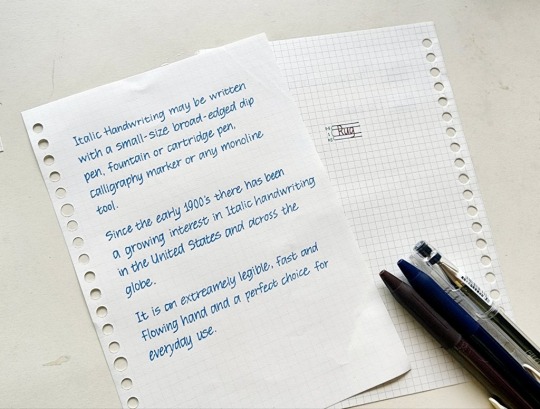 Italic Handwriting may be written
with a small-size broad-edged dip
pen, fountain or cartridge pen,
calligraphy marker or any monoline
tool.
Since the early 1900's there has been
a growing interest in Italic handwriting
in the United States and across the
globe.
It is an extreamely legible, fast and
flowing hand and a perfect choice for
everyday use.
Rug